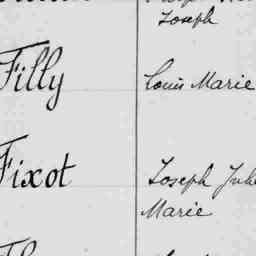 Joseph
Filly Louis Marie
Fixot Joseph
Marie